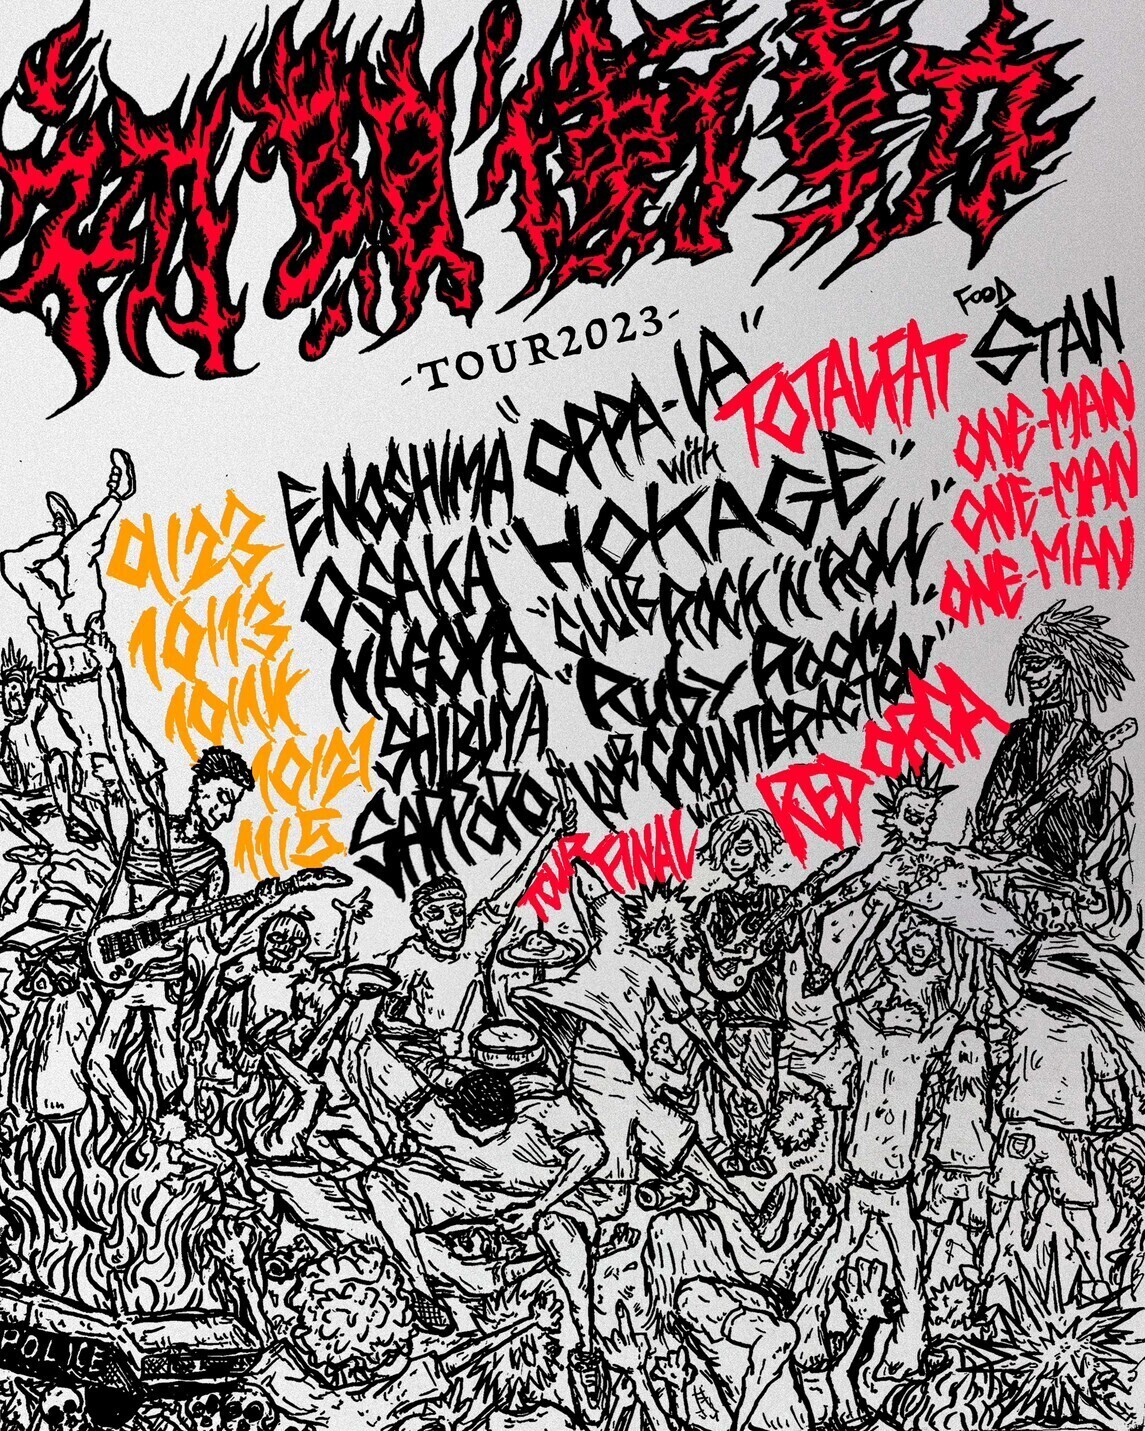 -TOUR2023-
9/23 ENOSHIMA "OPPA-LA" with TOTALFAT FOOD STAN
10/13 OSAKA "HOKAGE" ONE-MAN
10/14 NAGOYA "CLUB ROCK'N'ROLL" ONE-MAN
10/21 SHIBUYA "Ruby Room" ONE-MAN
11/5 SAPPORO "KLUB COUNTER ACTION"
TOUR FINAL with RED ORCA
POLICE